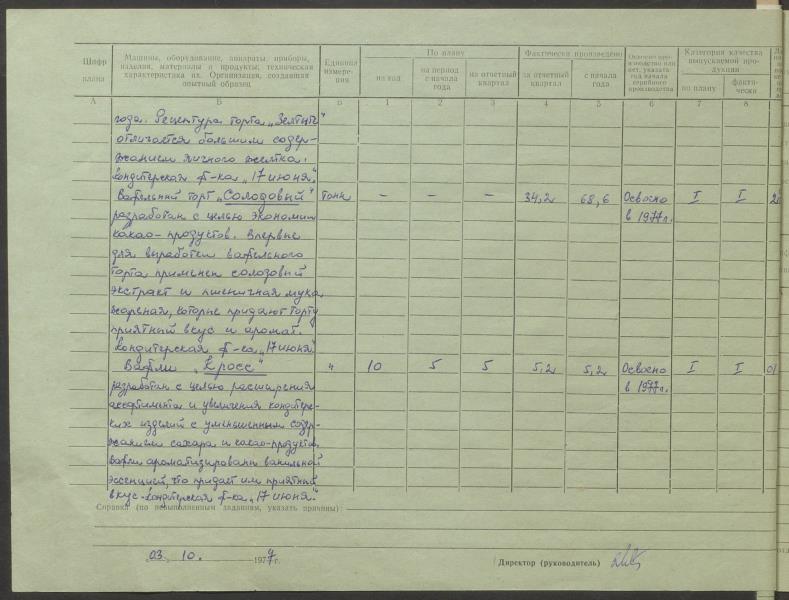 Шифр плана
Машины, оборудование, аппараты, приборы, изделия, материалы и продукты, техническая характеристика их. Организация, создавшая опытный образец
Единица измерения
По плану
на год
на период с начала года
на отчетный квартал
Фактически произведено
за отчетный квартал
с начала года
Категория качества выпускаемой продукции
по плану
фактически
А Б В 1 2 3 4 5 6 7 8
года. Рецептура торта „Зелтите"
отличается большим содер-
жанием яичного желтка.
Кондитерская ф-ка „17 июня".
Вафельный торт „Солодовый" тонн – – – 34,2 68,6 Освоено I I
разработан с целью экономии в 1977 г.
какао-продуктов. Впервые
для выработки вафельного
торта применен солодовый
экстракт и пшеничная мука
жареная, которые придают торту
приятный вкус и аромат.
Кондитерская ф-ка „17 июня".
Вафли „Кросс" " 10 5 5 5,2 5,2 Освоено I I 01
разработан с целью расширения в 1977 г.
ассортимента и увеличения кондитерс-
ких изделий с уменьшенным содер-
жанием сахара и какао-продуктов.
Вафли ароматизированы ванильной
эссенцией, что придает им приятный
вкус. Кондитерская ф-ка „17 июня".
Справка (по невыполненным заданиям, указать причины):
03. 10. 1977 г.
Директор (руководитель)